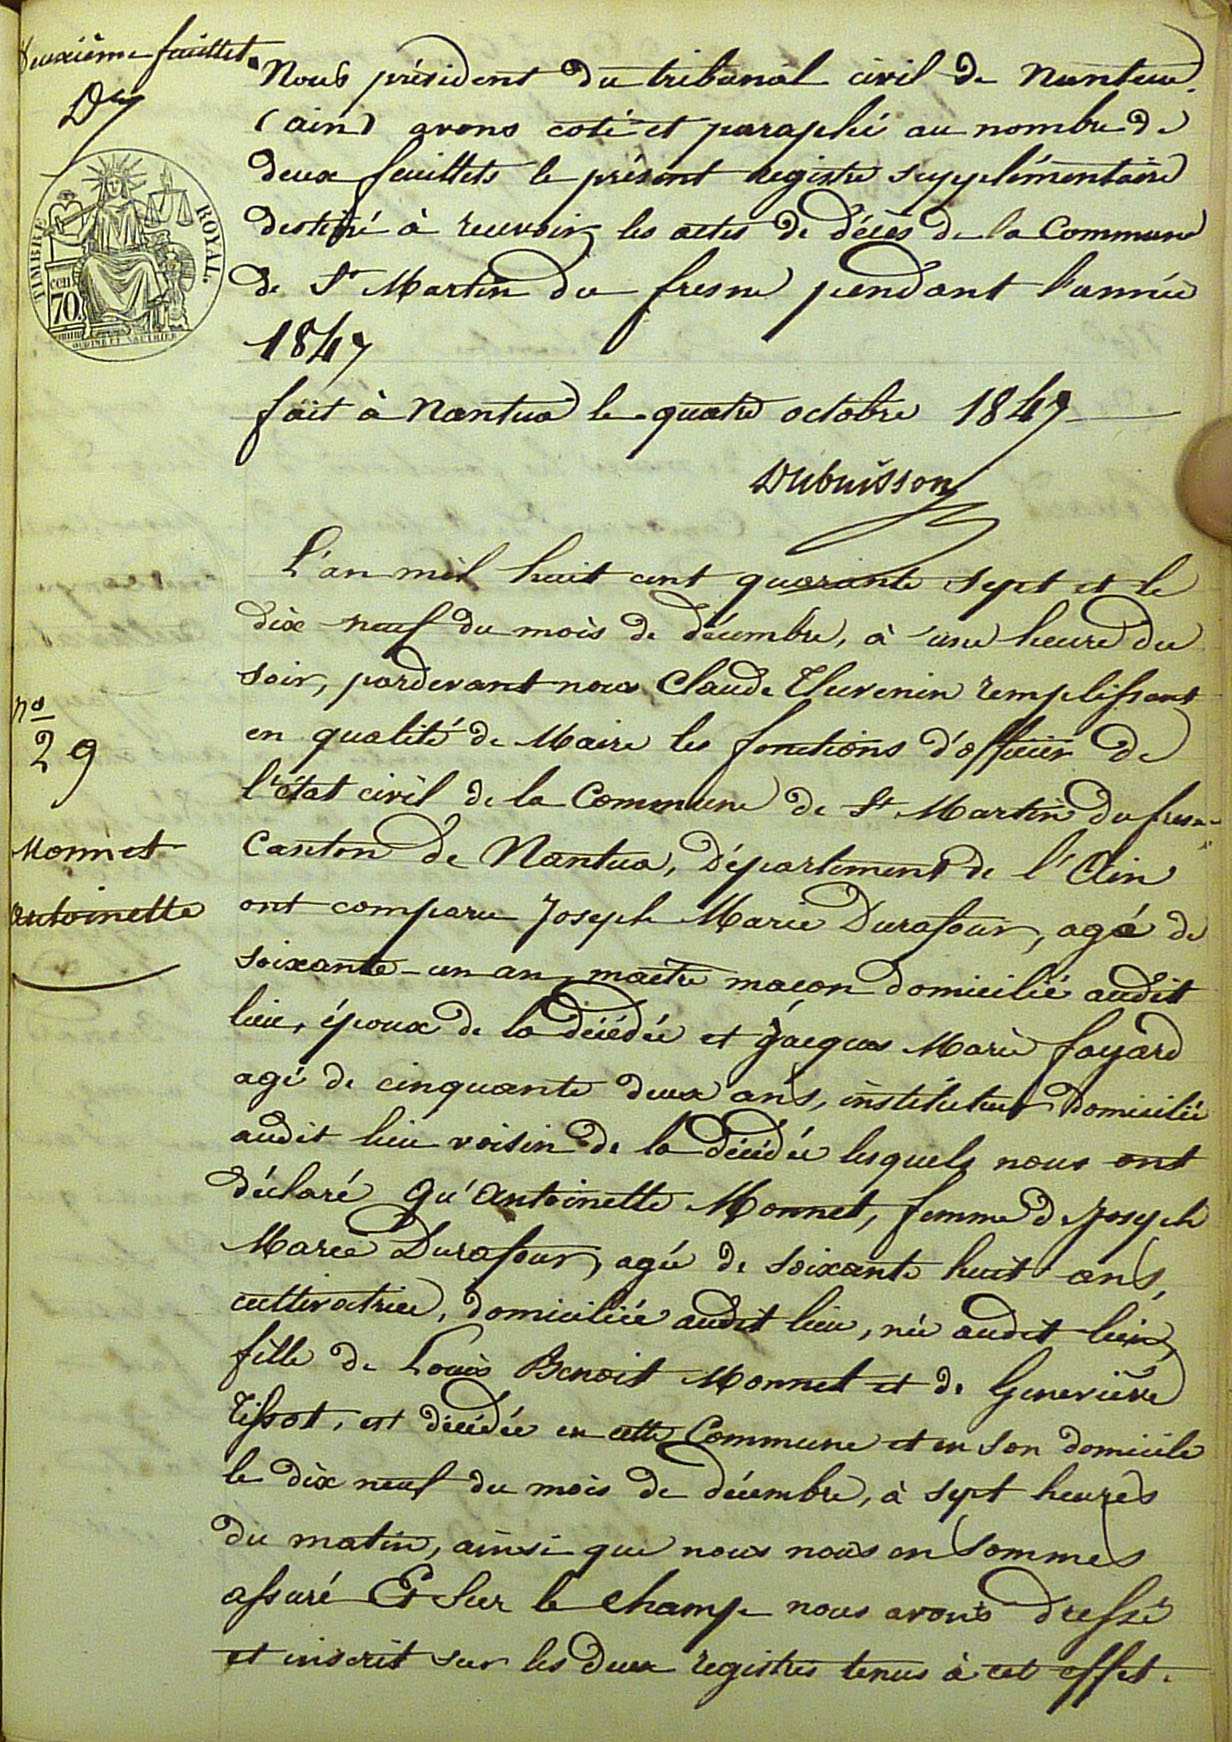 deuxième feuillet.
Dy
TIMBRE ROYAL.
cent
70.
Nous président du tribunal civil de Nantua
(ain) avons coté et paraphé au nombre de
deux feuillets le présent registre supplémentaire
destiné à recevoir les actes de décès de la Commune
de St Martin du fresne pendant l'année
1847
fait à Nantua le quatre octobre 1847
Dubuisson
L'an mil huit cent quarante sept et le
dix neuf du mois de décembre, à une heure du
soir, pardevant nous Claude Thevenin remplissant
en qualité de Maire les fonctions d'officier de
l'état civil de la Commune de St Martin du fresne
Canton de Nantua, Département de l'Ain
ont comparu Joseph Marie Durafour, agé de
soixante-un an, maitre maçon domicilié audit
lieu, époux de la décédée et Jacques Marie fayard
agé de cinquante deux ans, instituteur domicilié
audit lieu voisin de la décédée lesquels nous ont
déclaré qu'Antoinette Monnet, femme de Joseph
Marie Durafour, agée de soixante huit ans,
cultivatrice, domiciliée audit lieu, née audit lieu,
fille de Louis Benoit Monnet et de Geneviève
Tissot, est décédée en cette Commune et en son domicile
le dix neuf du mois de décembre, à sept heures
du matin, ainsi que nous nous en sommes
assuré Et sur le champ nous avons dressé
et inscrit sur les deux registres tenus à cet effet.
no
29
Monnet
Antoinette